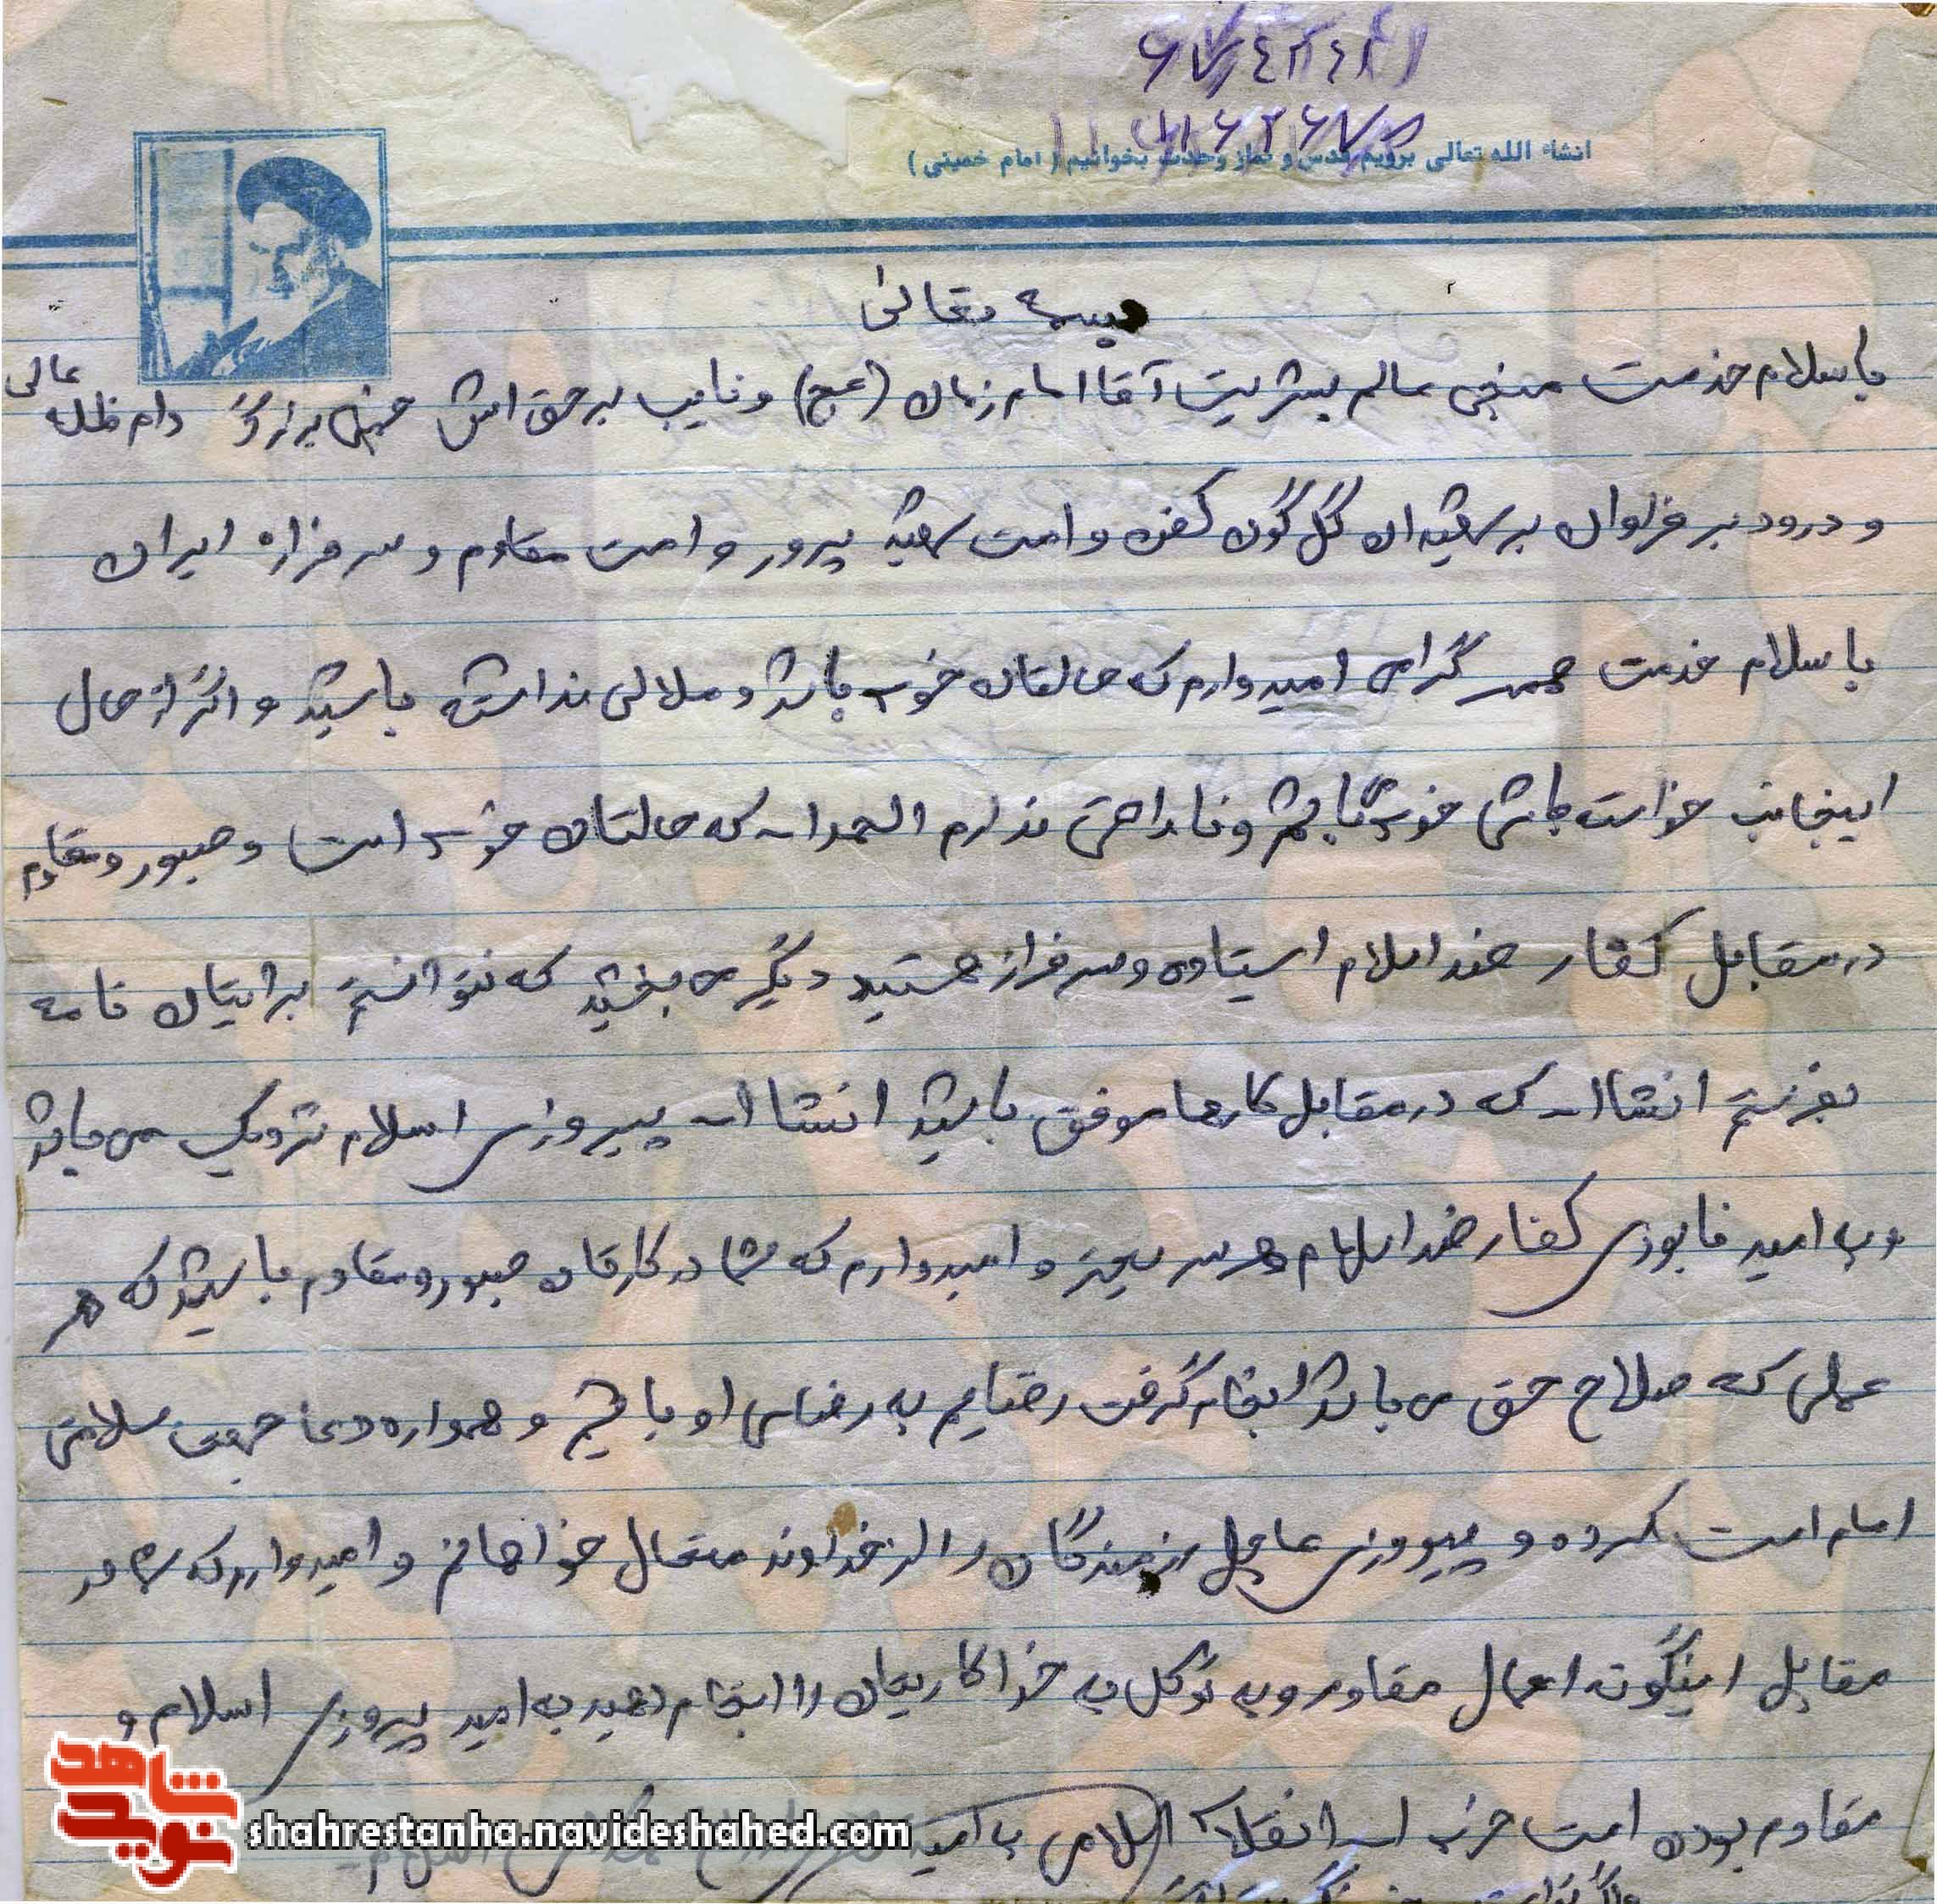 انشاء الله تعالی برویم قدس و نماز وحدت بخوانیم ( امام خمینی )
بسمه تعالی
با سلام خدمت منجی عالم بشریت آقا امام زمان (عج) و نایب بر حق اش خمینی بزرگ دام ظله عالی
و درود بر فراوان بر شهیدان گلگون کفن و امت شهید پرور و امت مقاوم و سرفرازه ایران
با سلام خدمت گرامی امیدوارم که حالتان خوب باشد و ملالی نداشته باشید و اگر از حال
اینجانب خواسته باشی خوب می‌باشم و ناراحتی ندارم الحمدا... که حالتان خوب است و صبور و مقاوم
در مقابل کفار ضد اسلام استاده و سرفراز هستید دیگر می بخشید که نتوانستم برایتان نامه
بفرستم انشاا... که در مقابل کارها موفق باشید انشاا... پیروزی اسلام نزدیک می باشد
و به امید نابودی کفار ضد اسلام هر سریعتر و امیدوارم که شما در کارتان صبور و مقاوم باشید که هر
عملی که صلاح حق می باشد انجام گرفت رضایم به رضای او باشیم و همواره دعا جهت سلامتی
امام امت کرده و پیروزی عاجل رزمندگان را از خداوند متعال خواهانم و امیدوارم که شما در
مقابل اینگونه اعمال مقاوم و به توکل به خدا کاریتان را انجام دهید به امید پیروزی اسلام و
مقاوم بودن امت حزب ا... انقلاب اسلامی به امید
نوید شاهد
shahrestanha.navideshahed.com